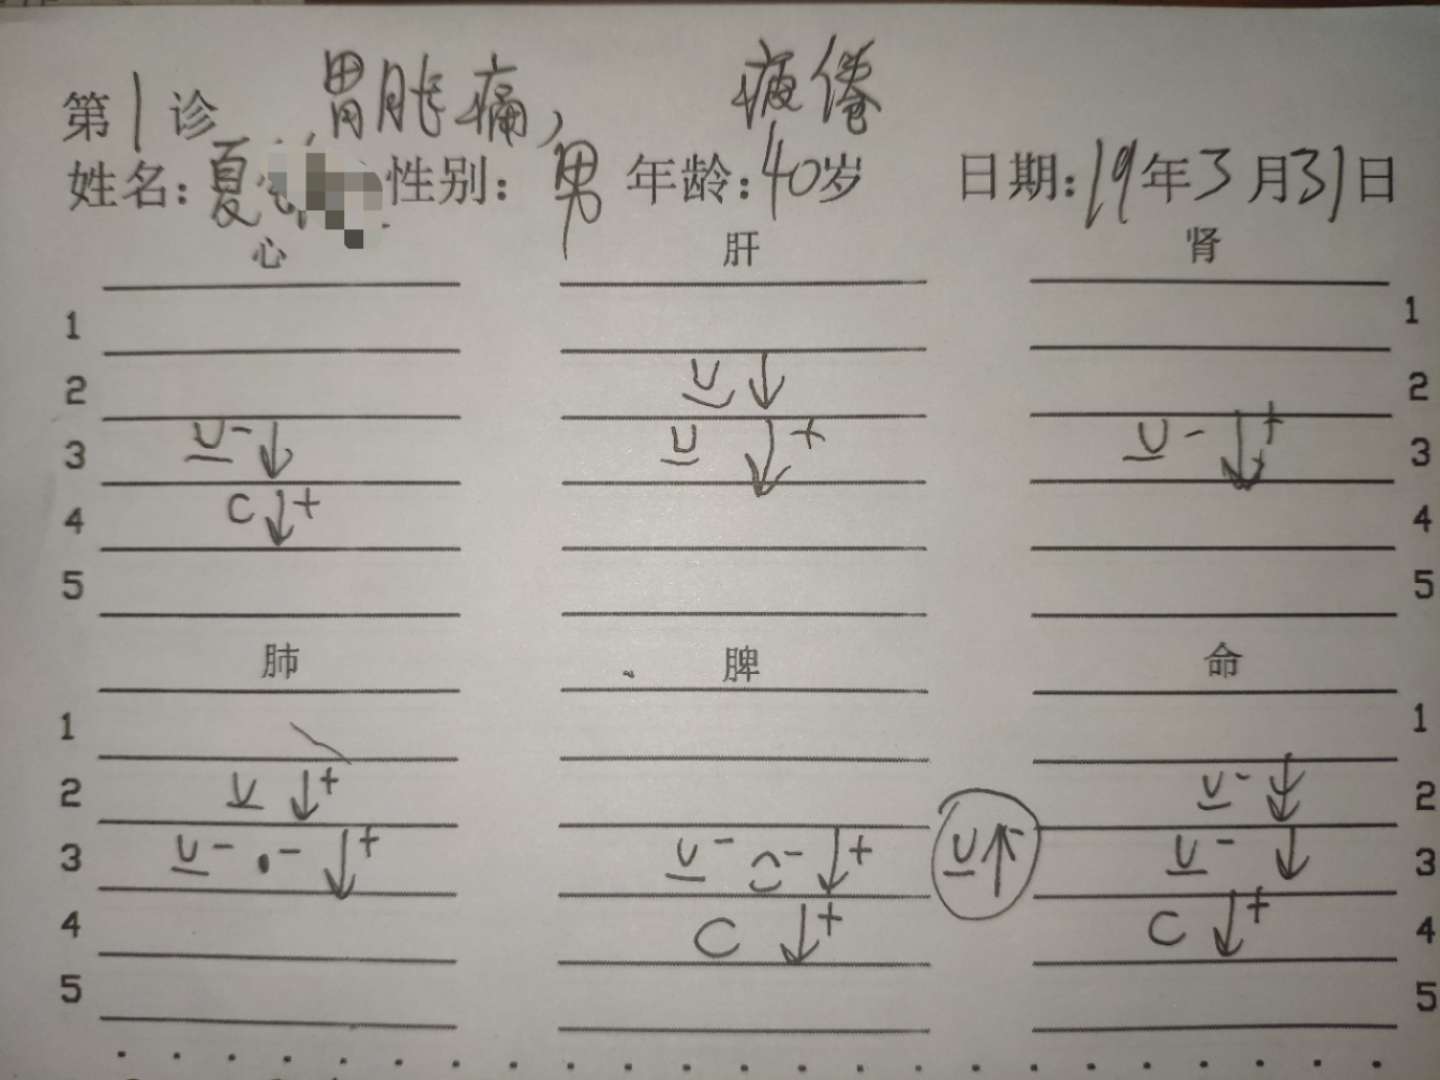 第1诊 胃胀痛, 疲倦
姓名:夏 性别:男 年龄:40岁 日期:19年3月31日
心 肝 肾
1 1
2 U ↓ 2
3 U - ↓ U ↓ + U - ↓ + 3
4 C ↓ + 4
5 5
肺 脾 命
1 1
2 U ↓ + U - ↓ 2
3 U - • - ↓ + U - - ↓ + U ↑ - U - ↓ 3
4 C ↓ + C ↓ + 4
5 5